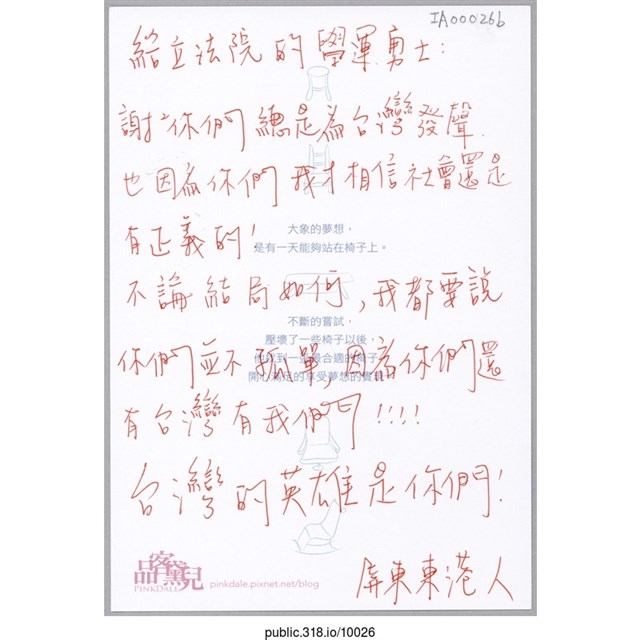 IA00026b
給立法院的學運勇士:
謝謝你們總是為台灣發聲.
也因為你們我才相信社會還是
有正義的!
大象的夢想，
是有一天能夠站在椅子上。
不論結局如何,我都要說
不斷的嘗試，
壓壞了一些椅子以後，
你們並不孤單,因為你們還
開心滿足的享受夢想的實現
有台灣有我們!!!!
台灣的英雄是你們!
品客黛兒
PINKDALE
pinkdale.pixnet.net/blog
屏東東港人
public.318.io/10026